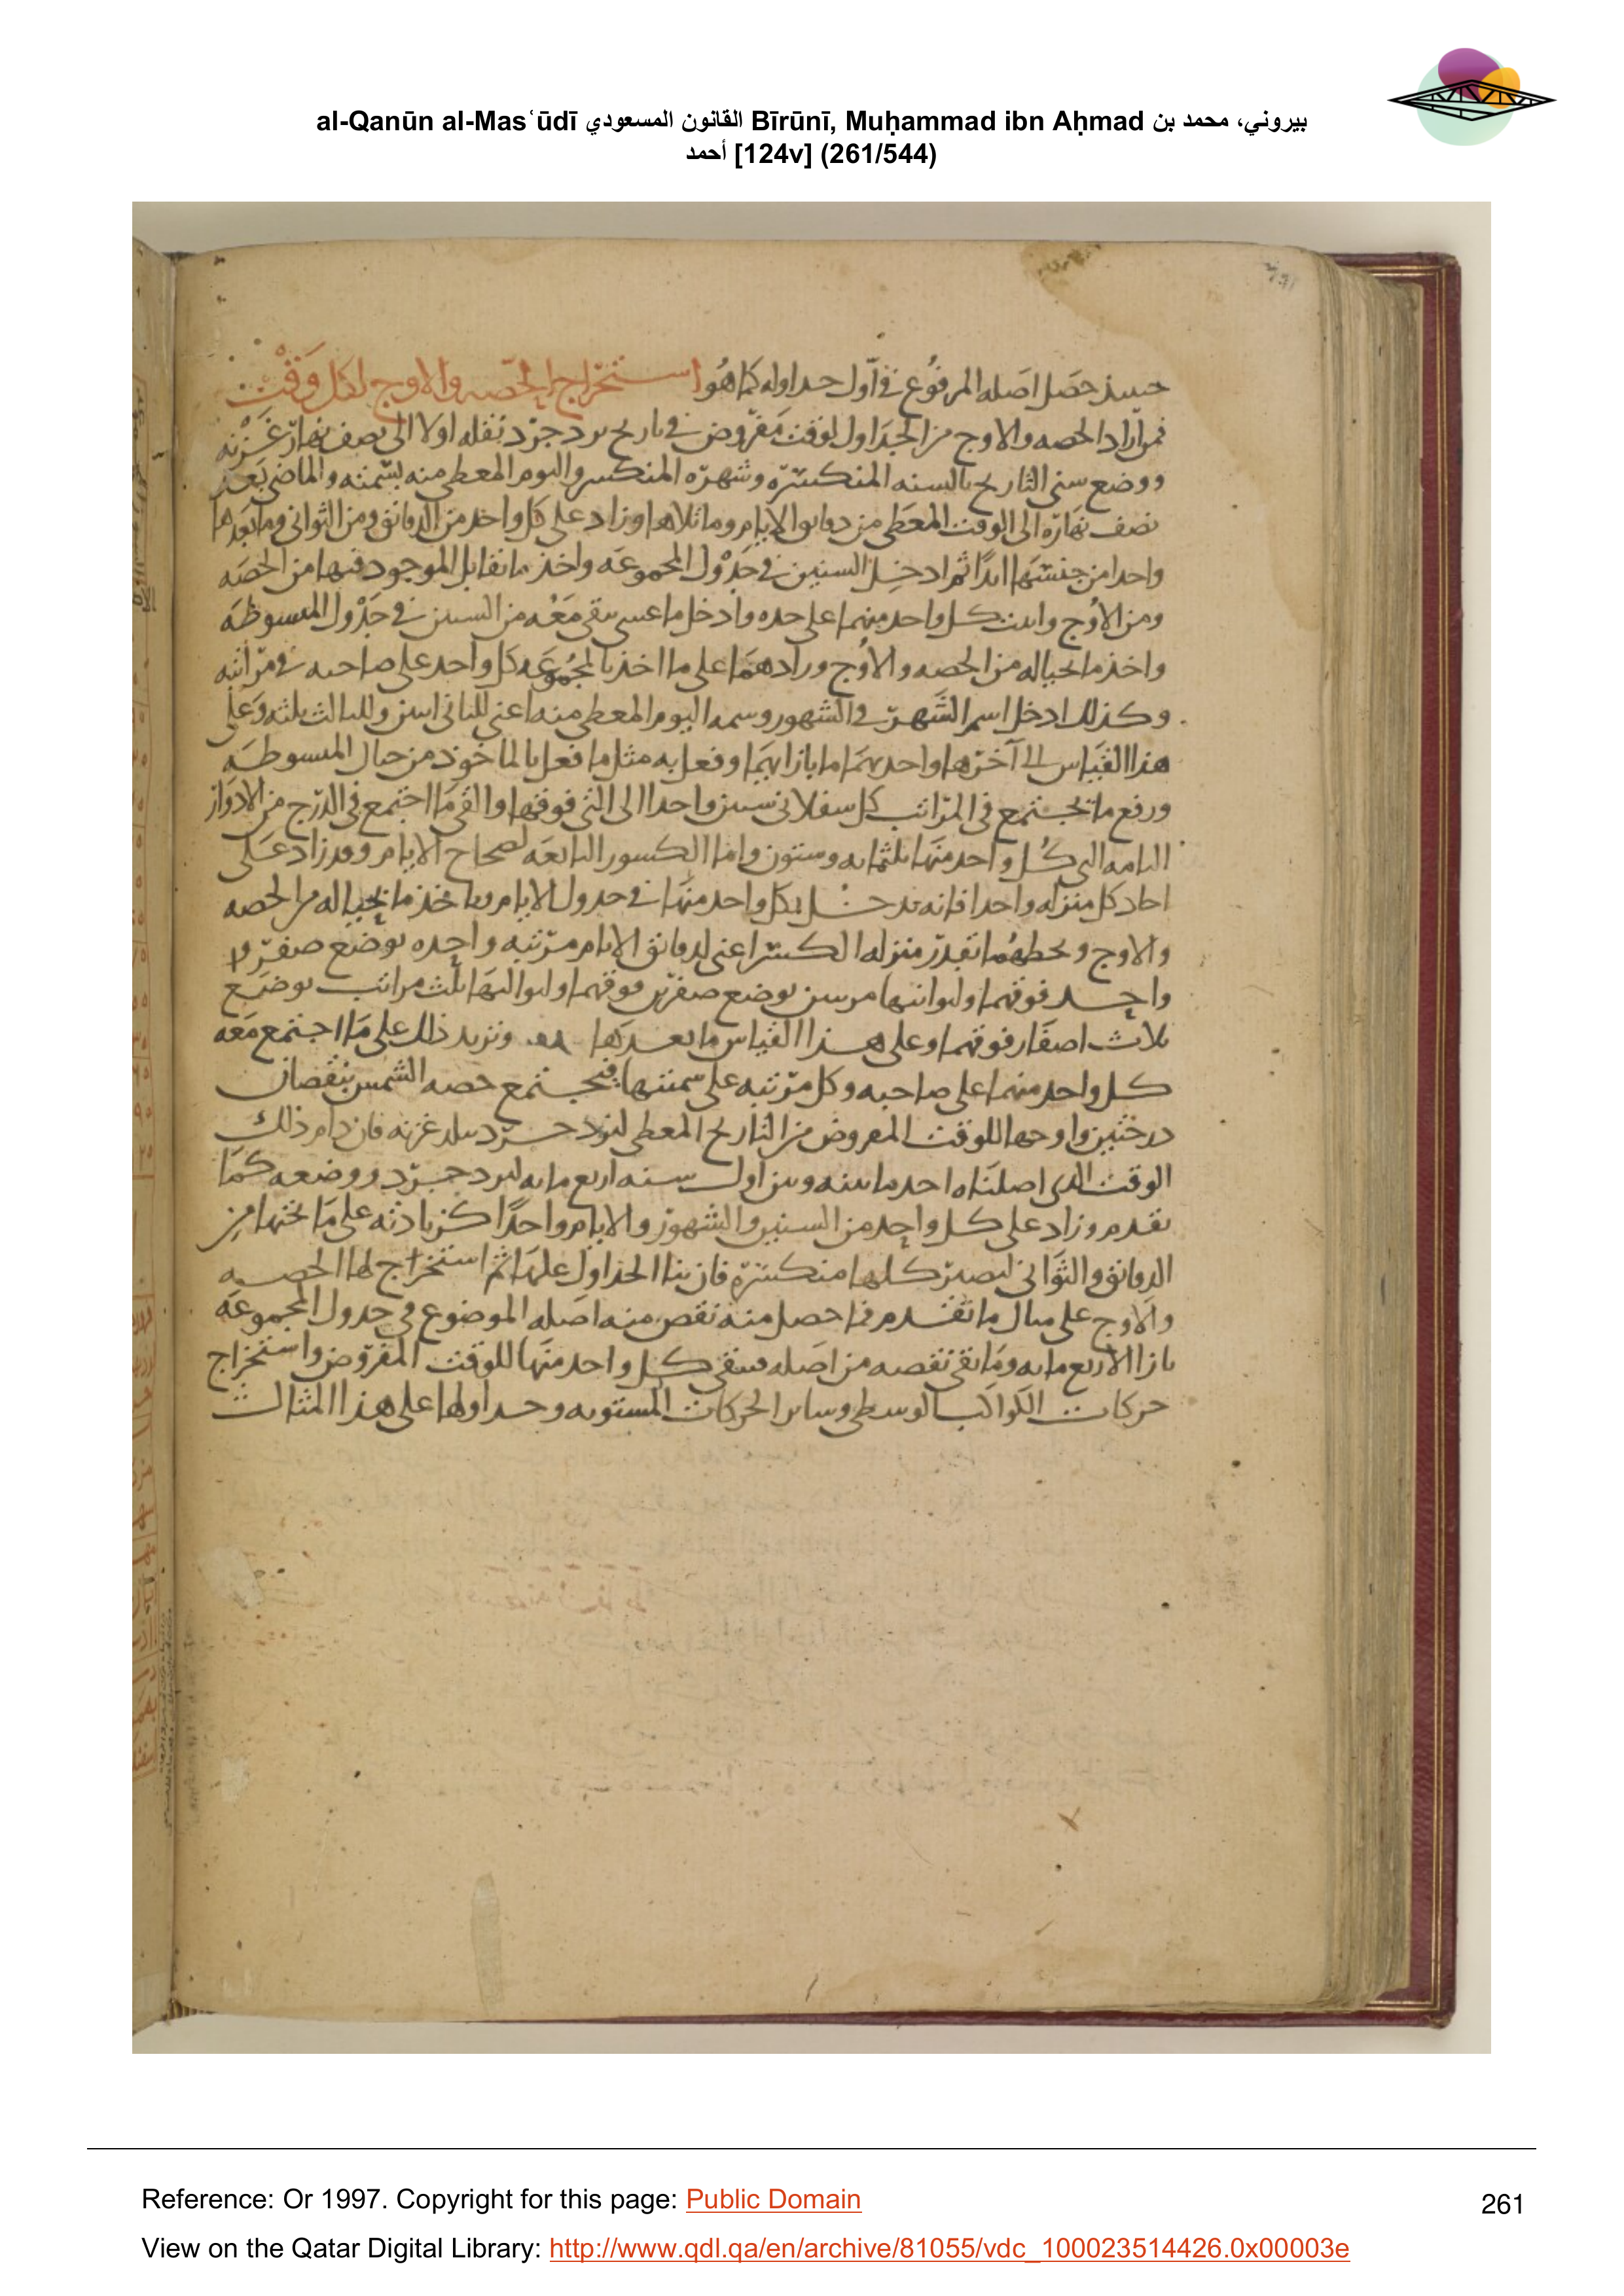 al-Qanūn al-Masʿūdī القانون المسعودي Bīrūnī, Muḥammad ibn Aḥmad بيروني، محمد بن
أحمد [124v] (261/544)
حصل اصله المرفوع في اول حداوله كما هو استخراج الحصه والاوج لكل وقت
فمن اراد الحصه والاوج من الجداول لوقت مفروض في تاريخ يزدجرد نقله اولا الى نصف نهار غزنه
ووضع سني التاريخ بالسنه المنكسره وشهره المنكسر واليوم المعطى منه بسمته والماضي بعد
نصف نهاره الى الوقت المعطى من دقايق الايام وما تلاها وزاد على كل واحد من الدقائق ومن الثواني وما بعدها
واحدا من جنسها ابدا ثم ادخل السنين في جدول المجموعه واخذ ما يقابل الموجود فيها من الحصه
ومن الاوج واثبت كل واحد منهما على حده وادخل ما عسى يبقى معه من السنين في جدول المبسوطه
واخذ ما بحياله من الحصه والاوج وزادهما على ما اخذ بالمجموعه كل واحد على صاحبه في مراتبه
وكذلك ادخل اسم الشهر في الشهور وسمه اليوم المعطى منه اعني للثاني اثنين وللثالث ثلثه وعلى
هذا القياس الى آخرها واخذ بهما ما بازايهما وفعل به مثل ما فعل بالماخوذ من حيال المبسوطه
ورفع ما يجتمع في المراتب كل سفلاني ستين واحدا الى التي فوقها والقى ما اجتمع في الدرج من الادوار
التامه التي كل واحد منها ثلثمايه وستون واما الكسور التابعه لصحاح الايام وقد زاد على
احاد كل منزله واحدا فانه يدخل بكل واحد منها في جدول الايام وياخذ ما بحياله من الحصه
والاوج ويحطهما بقدر منزله الكسر اعني لدقائق الايام مرتبه واحده بوضع صفر
واحد فوقهما ولثوانيها مرتبتين بوضع صفرين فوقهما ولثوالثها ثلث مراتب بوضع
ثلاث اصفار فوقهما وعلى هذا القياس ما بعدها ونزيد ذلك على ما اجتمع معه
كل واحد منهما على صاحبه وكل مرتبه على سمتها فيجتمع حصه الشمس بنقصان
درجتين واوجها للوقت المفروض من التاريخ المعطى ليزدجرد ببلد غزنه فان رام ذلك
الوقت الذي اصلناه اخذ ما بينه وبين اول سنه اربع مايه ليزدجرد ووضعه كما
تقدم وزاد على كل واحد من السنين والشهور والايام واحدا كزيادته على ما تحتها من
الدقائق والثواني ليصير كلها منكسره فان بنا الجداول عليها ثم استخراج لها الحصه
والاوج على مثال ما تقدم فما حصل منه نقص منه اصله الموضوع في جدول المجموعه
بازا الاربع مايه وما بقي نقصه من اصله فيبقى كل واحد منها للوقت المفروض واستخراج
حركات الكواكب الوسطى وساير الحركات المستويه وجداولها على هذا المثال
Reference: Or 1997. Copyright for this page: Public Domain
View on the Qatar Digital Library: http://www.qdl.qa/en/archive/81055/vdc_100023514426.0x00003e
261